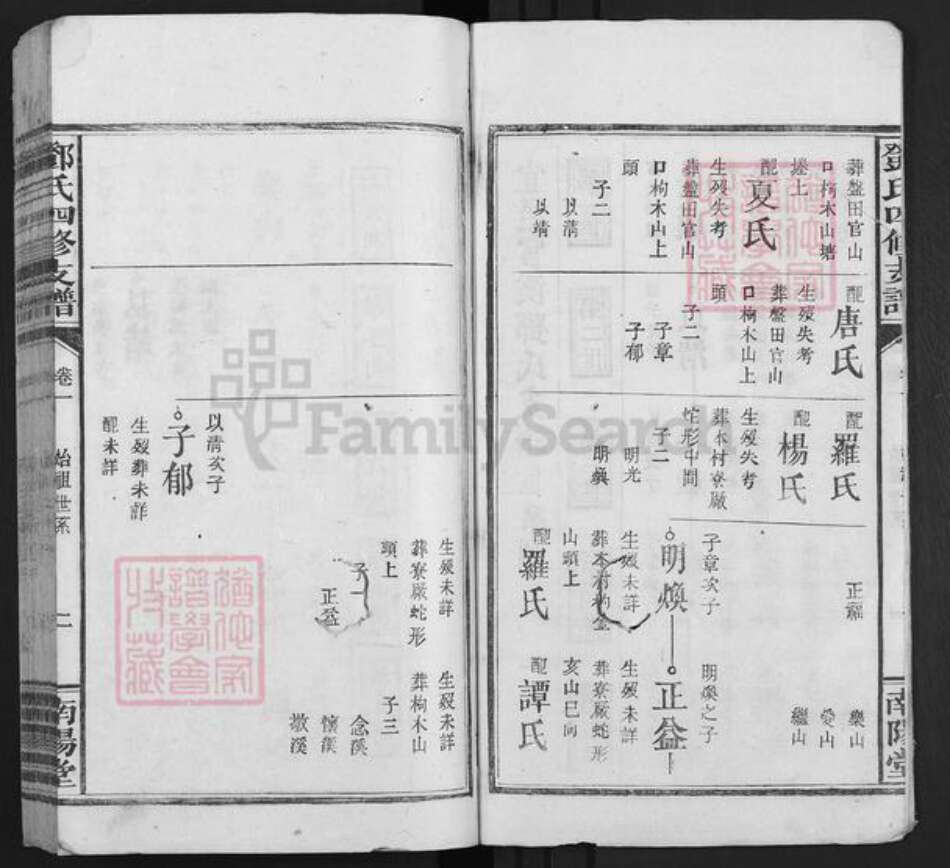 鄧氏四修支譜
葬盤田官山
口枸木山塘
塝上
配夏氏
生歿失考
葬盤田官山
口枸木山上
頭
子二
以清
以靖
配唐氏
生歿失考
葬盤田官山
口枸木山上
頭
子二
子章
子郁
配羅氏
配楊氏
生歿失考
葬本村寮厰
蛇形中間
子二
明光
明煥
正福
子章次子
明煥
生歿未詳
山頭上
配羅氏
樂山
愛山
繼山
明煥之子
正益
生歿未詳
葬寮厰蛇形
亥山巳向
配譚氏
南陽堂
生歿未詳
葬寮厰蛇形
頭上
子一
正益
生歿未詳
葬枸木山
子三
念溪
懷溪
墩溪
以清次子
子郁
生歿葬未詳
配未詳
鄧氏四修支譜
卷一
始祖世系
二
南陽堂
FamilySearch